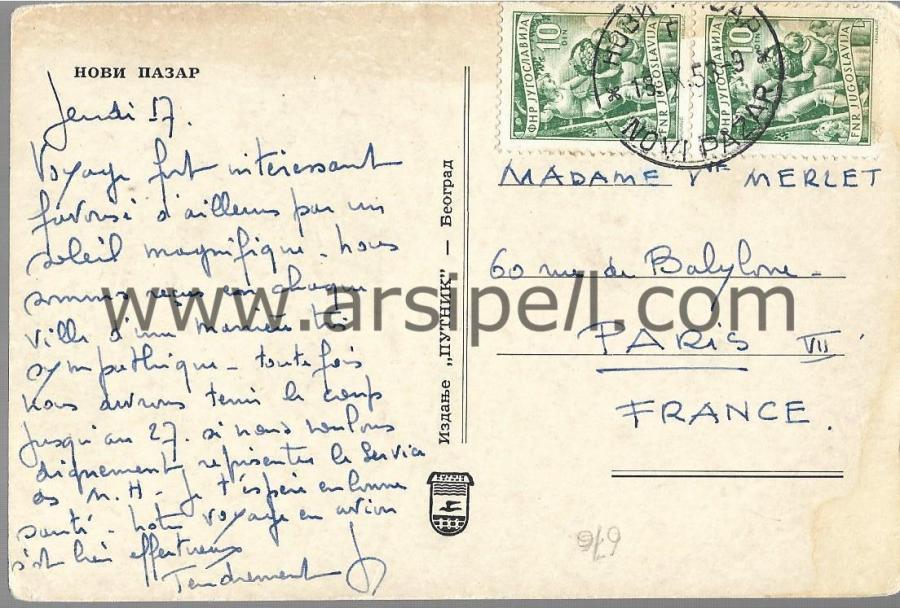 НОВИ ПАЗАР
Jeudi 17.
Voyage fort intéressant
favorisé d'ailleurs par un
soleil magnifique. nous
sommes reçus en chaque
ville d'une manière très
sympathique - toutefois
nous aurons tenir le coup
jusqu'au 27. si nous voulons
diquement représenter le Service
des M.H - Je t'espère en bonne
santé - notre voyage en avion
s'est bien effectué
Tendrement
Издање „ПУТНИК" — Београд
ФНР ЈУГОСЛАВИЈА
10 DIN
FNR JUGOSLAVIJA
ФНР ЈУГОСЛАВИЈА
10 DIN
FNR JUGOSLAVIJA
NOVI PAZAR
MADAME Vve MERLET
60 rue de Babylone -
PARIS VII
FRANCE.
676
www.arsipe/l.com